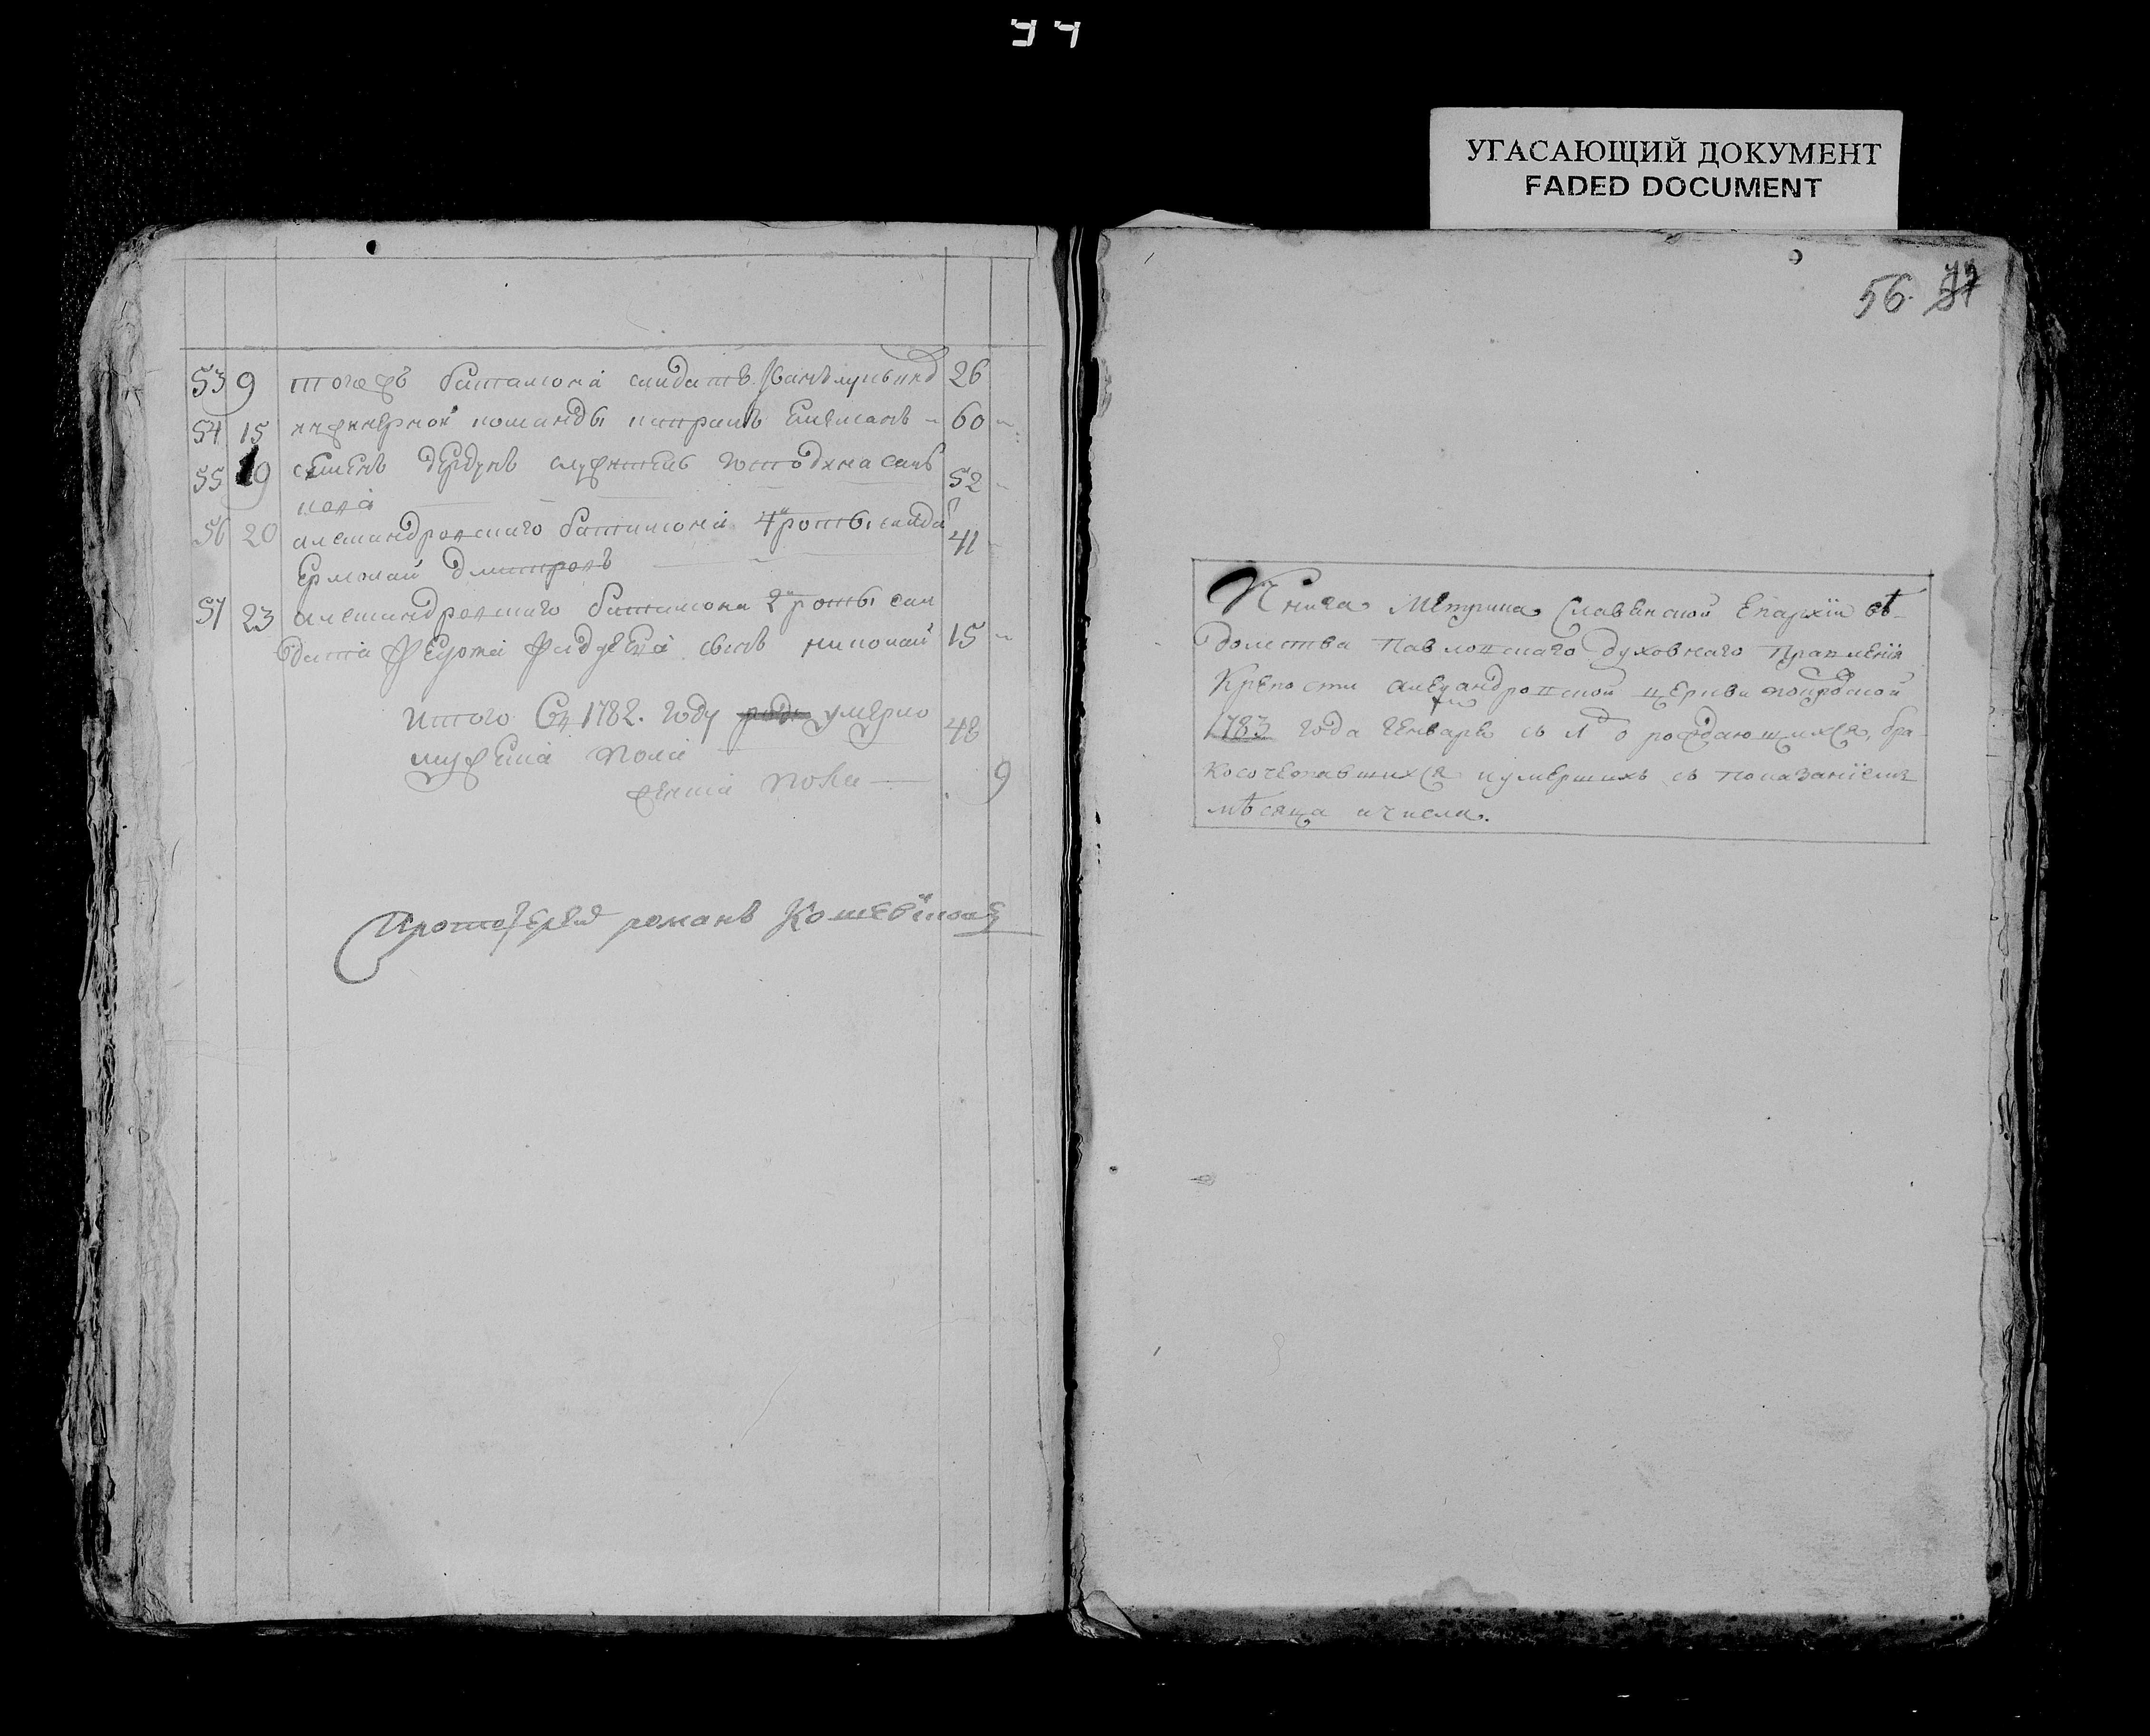 УГАСАЮЩИЙ ДОКУМЕНТ
FADED DOCUMENT
53 9 тогожъ баталиона салдатъ Иванъ 26
54 15 инженерной команды капралъ Емельянъ 60
55 19 Семенъ служитель господина 52
56 20 александровского баталиона 4й роты салда 41
Ермолай Дмитровъ
57 23 александровского баталиона 2й роты сал
дата сынъ николай 15
Итого Въ 1782. году умерло
мужеска пола 48
женска пола 9
Протоіерей романъ Кошевскій
56.
Книга Метрика Славенской Епархіи вѣ
домства Павловскаго духовнаго правленія
Крепости александровской церкви покровской
1783 года генваря съ 1го о рождающихся, бра
косочетавшихся и умершихъ съ показаніемъ
мѣсяца и числа.